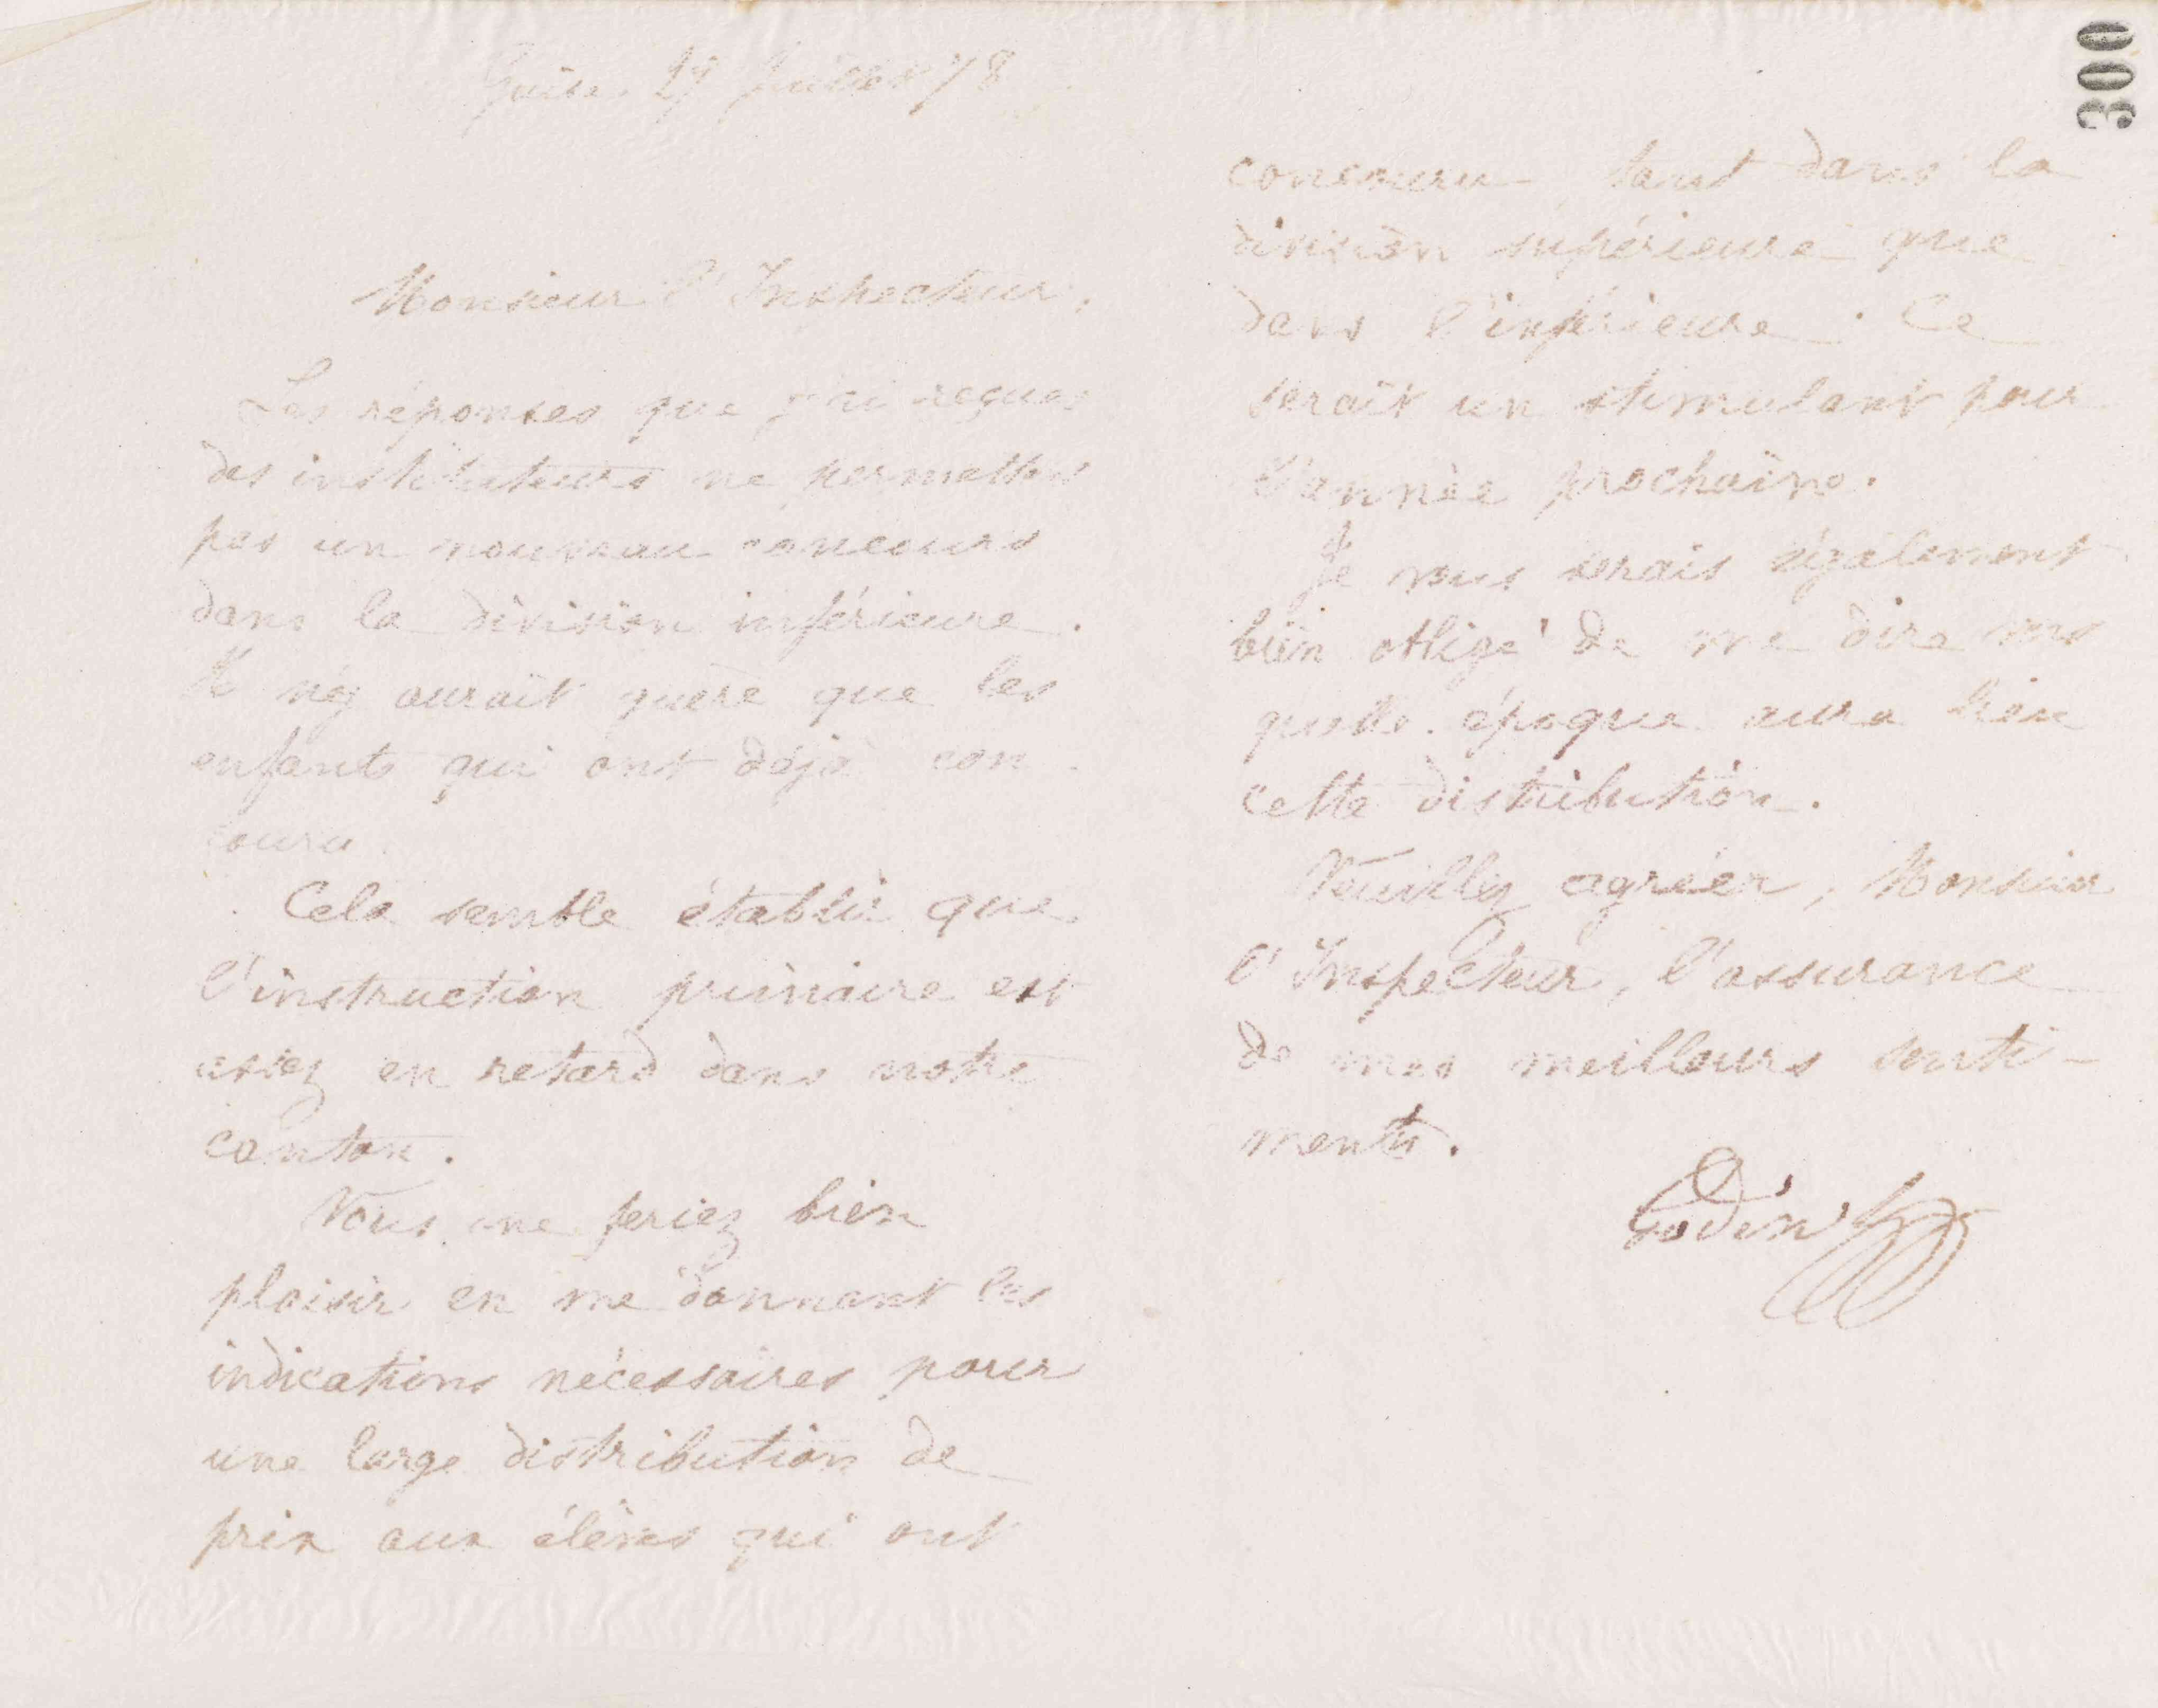 300
Guise 29 Juillet 78
Monsieur l'Inspecteur,
Les réponses que j'ai reçues
des instituteurs ne permettent
pas un nouveau concours
dans la division inférieure.
Il n'y aurait guère que les
enfants qui ont déjà con-
couru.
Cela semble établir que
l'instruction primaire est
assez en retard dans notre
canton.
Vous me feriez bien
plaisir en me donnant les
indications nécessaires pour
une large distribution de
prix aux élèves qui ont
concouru tant dans la
division supérieure que
dans l'inférieure. Ce
serait un stimulant pour
l'année prochaine.
Je vous serais également
bien obligé de me dire vers
quelle époque aura lieu
cette distribution.
Veuillez agréer, Monsieur
l'Inspecteur, l'assurance
de mes meilleurs senti-
ments.
Godin